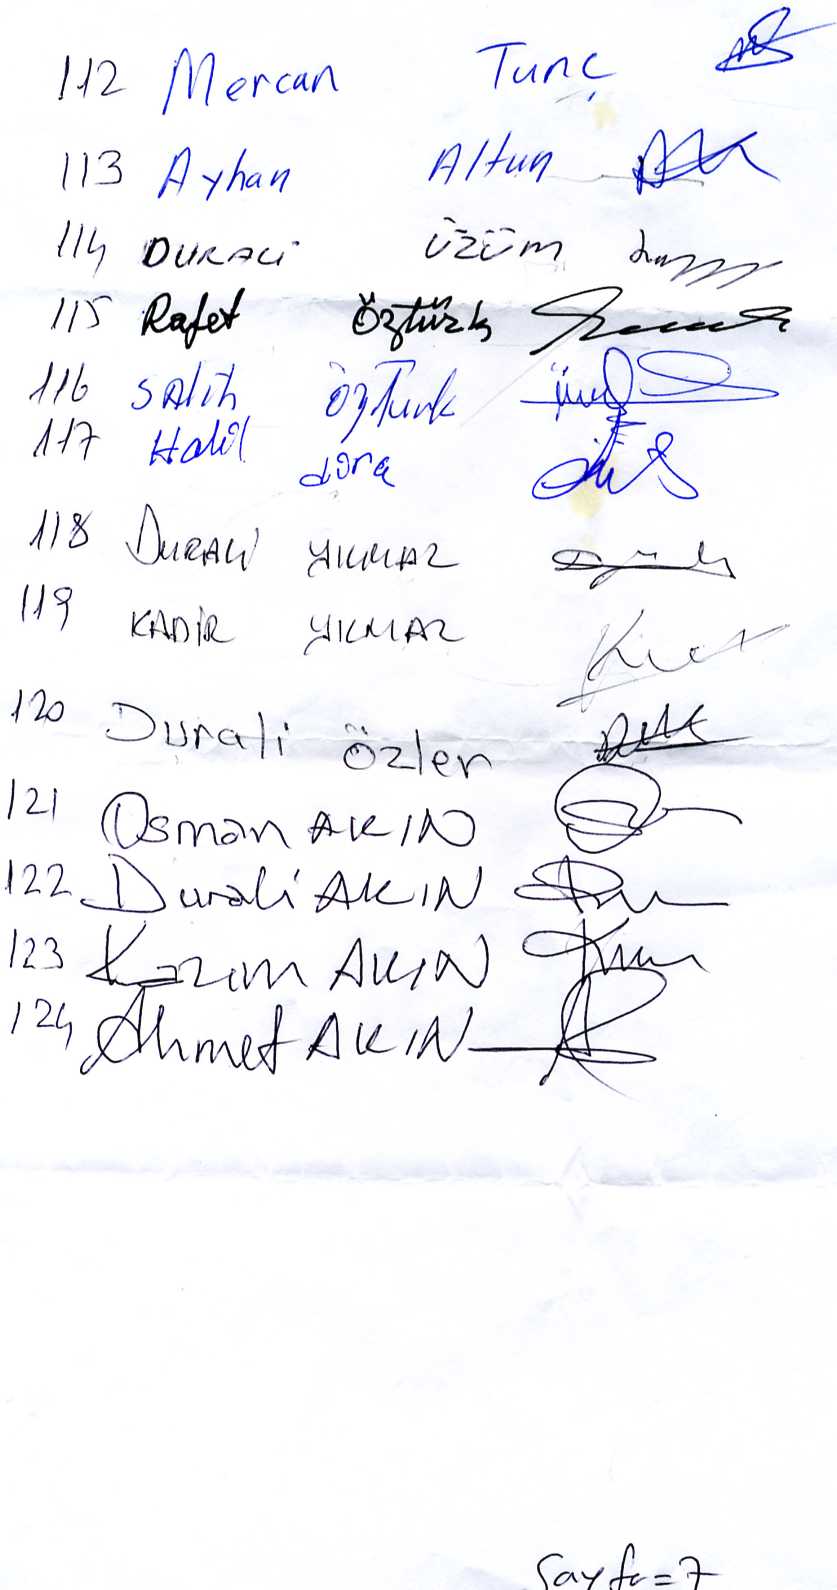 112 Mercan Tunç
113 Ayhan Altun
114 DURALİ ÜZÜM
115 Rafet Öztürk
116 SALİH ÖZTürk
117 Halil dora
118 DURALİ YILMAZ
119 KADİR YILMAZ
120 Durali Özlen
121 Osman AKIN
122 Durali AKIN
123 Kazım AKIN
124 Ahmet AKIN
Sayfa=7